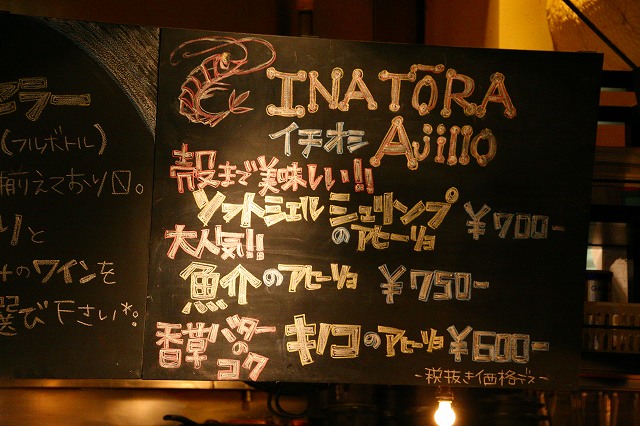 ビラー
(フルボトル)
揃えており〼。
りと
のワインを
選び下さい*。
INATORA
イチオシ Ajillo
殻まで美味しい!!
ソフトシェル シュリンプ
のアヒージョ ¥700-
大人気!!
魚介のアヒージョ ¥750-
香草バターの
コク
キノコのアヒージョ ¥600-
-税抜き価格デス-